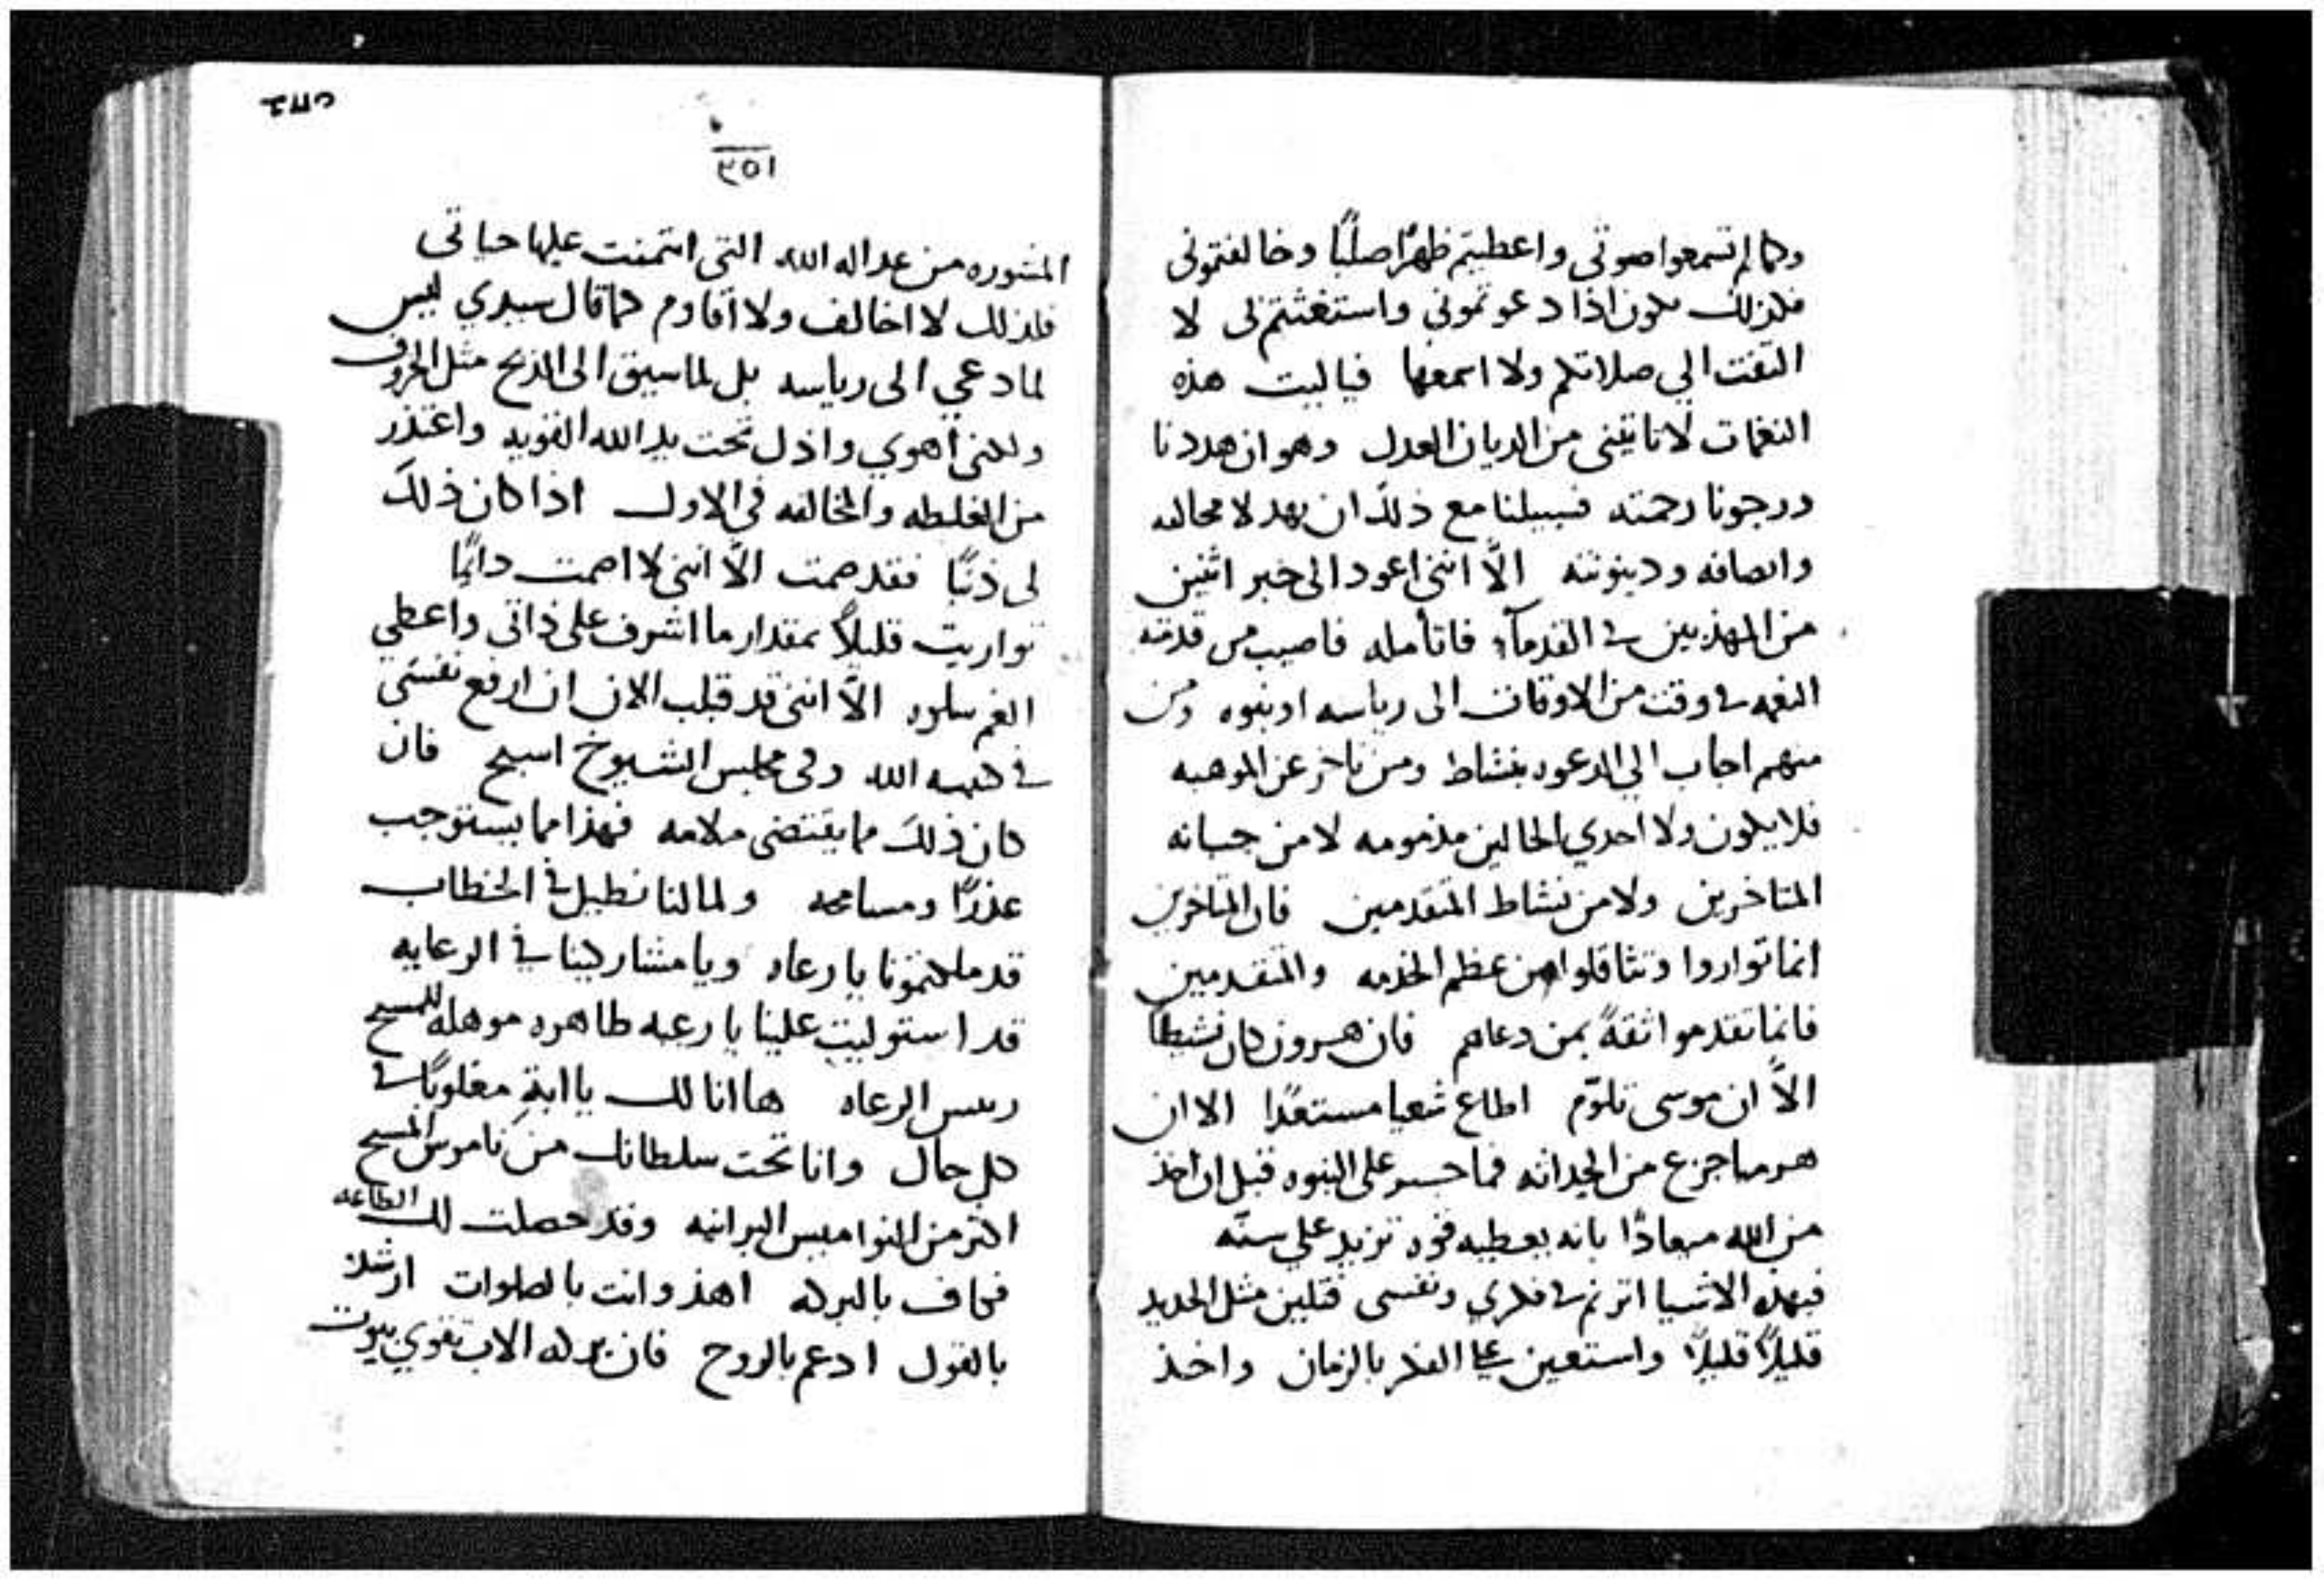 وكما لم تسمعوا صوتي واعطيتم ظهرًا صلبًا وخالفتموني
فلذلك يكون اذا دعوتموني واستغثتم لى لا
التفت الي صلاتكم ولا اسمعها فياليت هذه
النغمات لا تاتيني من الديان العدل وهو ان هددنا
ورجونا رحمته فسبيلنا مع ذلك ان نهد لا محاله
وانصافه ودينونته الّا انني اعود الى خبر اثنين
من المهذبين في القدماء فاتأمله فاصيب من قدمته
النعمه في وقت من الاوقات الى رياسه او نبوه ومن
منهم اجاب الي الدعوه بنشاط ومن تاخر عن الموهبه
فلا يكون ولا احدي الحالين مذمومه لا من جبانه
المتاخرين ولا من نشاط المتقدمين فان المتاخرين
انما تواروا وتثاقلوا من عظم الخدمه والمتقدمين
فانما تقدموا ثقةً بمن دعاهم فان هرون كان نشيطًا
الّا ان موسى تلوّم اطاع شعيا مستعدًا الا ان
هرميا جزع من الحداثه فما جسر على النبوه قبل ان اخذ
من الله ميعادًا بانه يعطيه قوه تزيد علي سنّه
فبهذه الاشيا اترنم في فكري ونفسى فتلين مثل الحديد
قليلًا قليلًا واستعين على الفكر بالزمان واخذ
٣٥١
المشوره من عداله الله التي ائتمنت عليها حياتى
فلذلك لا اخالف ولا اقاوم كما قال سيدي ليس
لما دعي الى رياسه بل لما سيق الى الذبح مثل الخروف
ولكني اهوي واذل تحت يد الله القويه واعتذر
من الغلطه والمخالفه في الاول اذا كان ذلك
لى ذنبًا فقد صمت الّا انني لا اصمت دايمًا
تواريت قليلاً بمقدار ما اشرف على ذاتى واعطي
الغم سلوه الّا اننى قد قبلت الان ان ارفع نفسى
في كنيسه الله وفى مجلس الشيوخ اسبح فان
كان ذلك مما يقتضى ملامه فهذا مما يستوجب
عذرًا ومسامحه ولما لنا نطيل في الخطاب
قد ملكتمونا يا رعاه ويا مشاركينا في الرعايه
قد استوليت علينا يا رعيه طاهره موهله للمسيح
ريس الرعاه ها انا لك يا ابةِ مغلوبًا في
كل حال وانا تحت سلطانك من ناموس المسيح
اكثر من النواميس البرانيه وقد حصلت لك الطاعه
فكاف بالبركه اهد وانت بالصلوات ارشد
بالقول ادعم بالروح فان بركه الاب تقوي بيوت